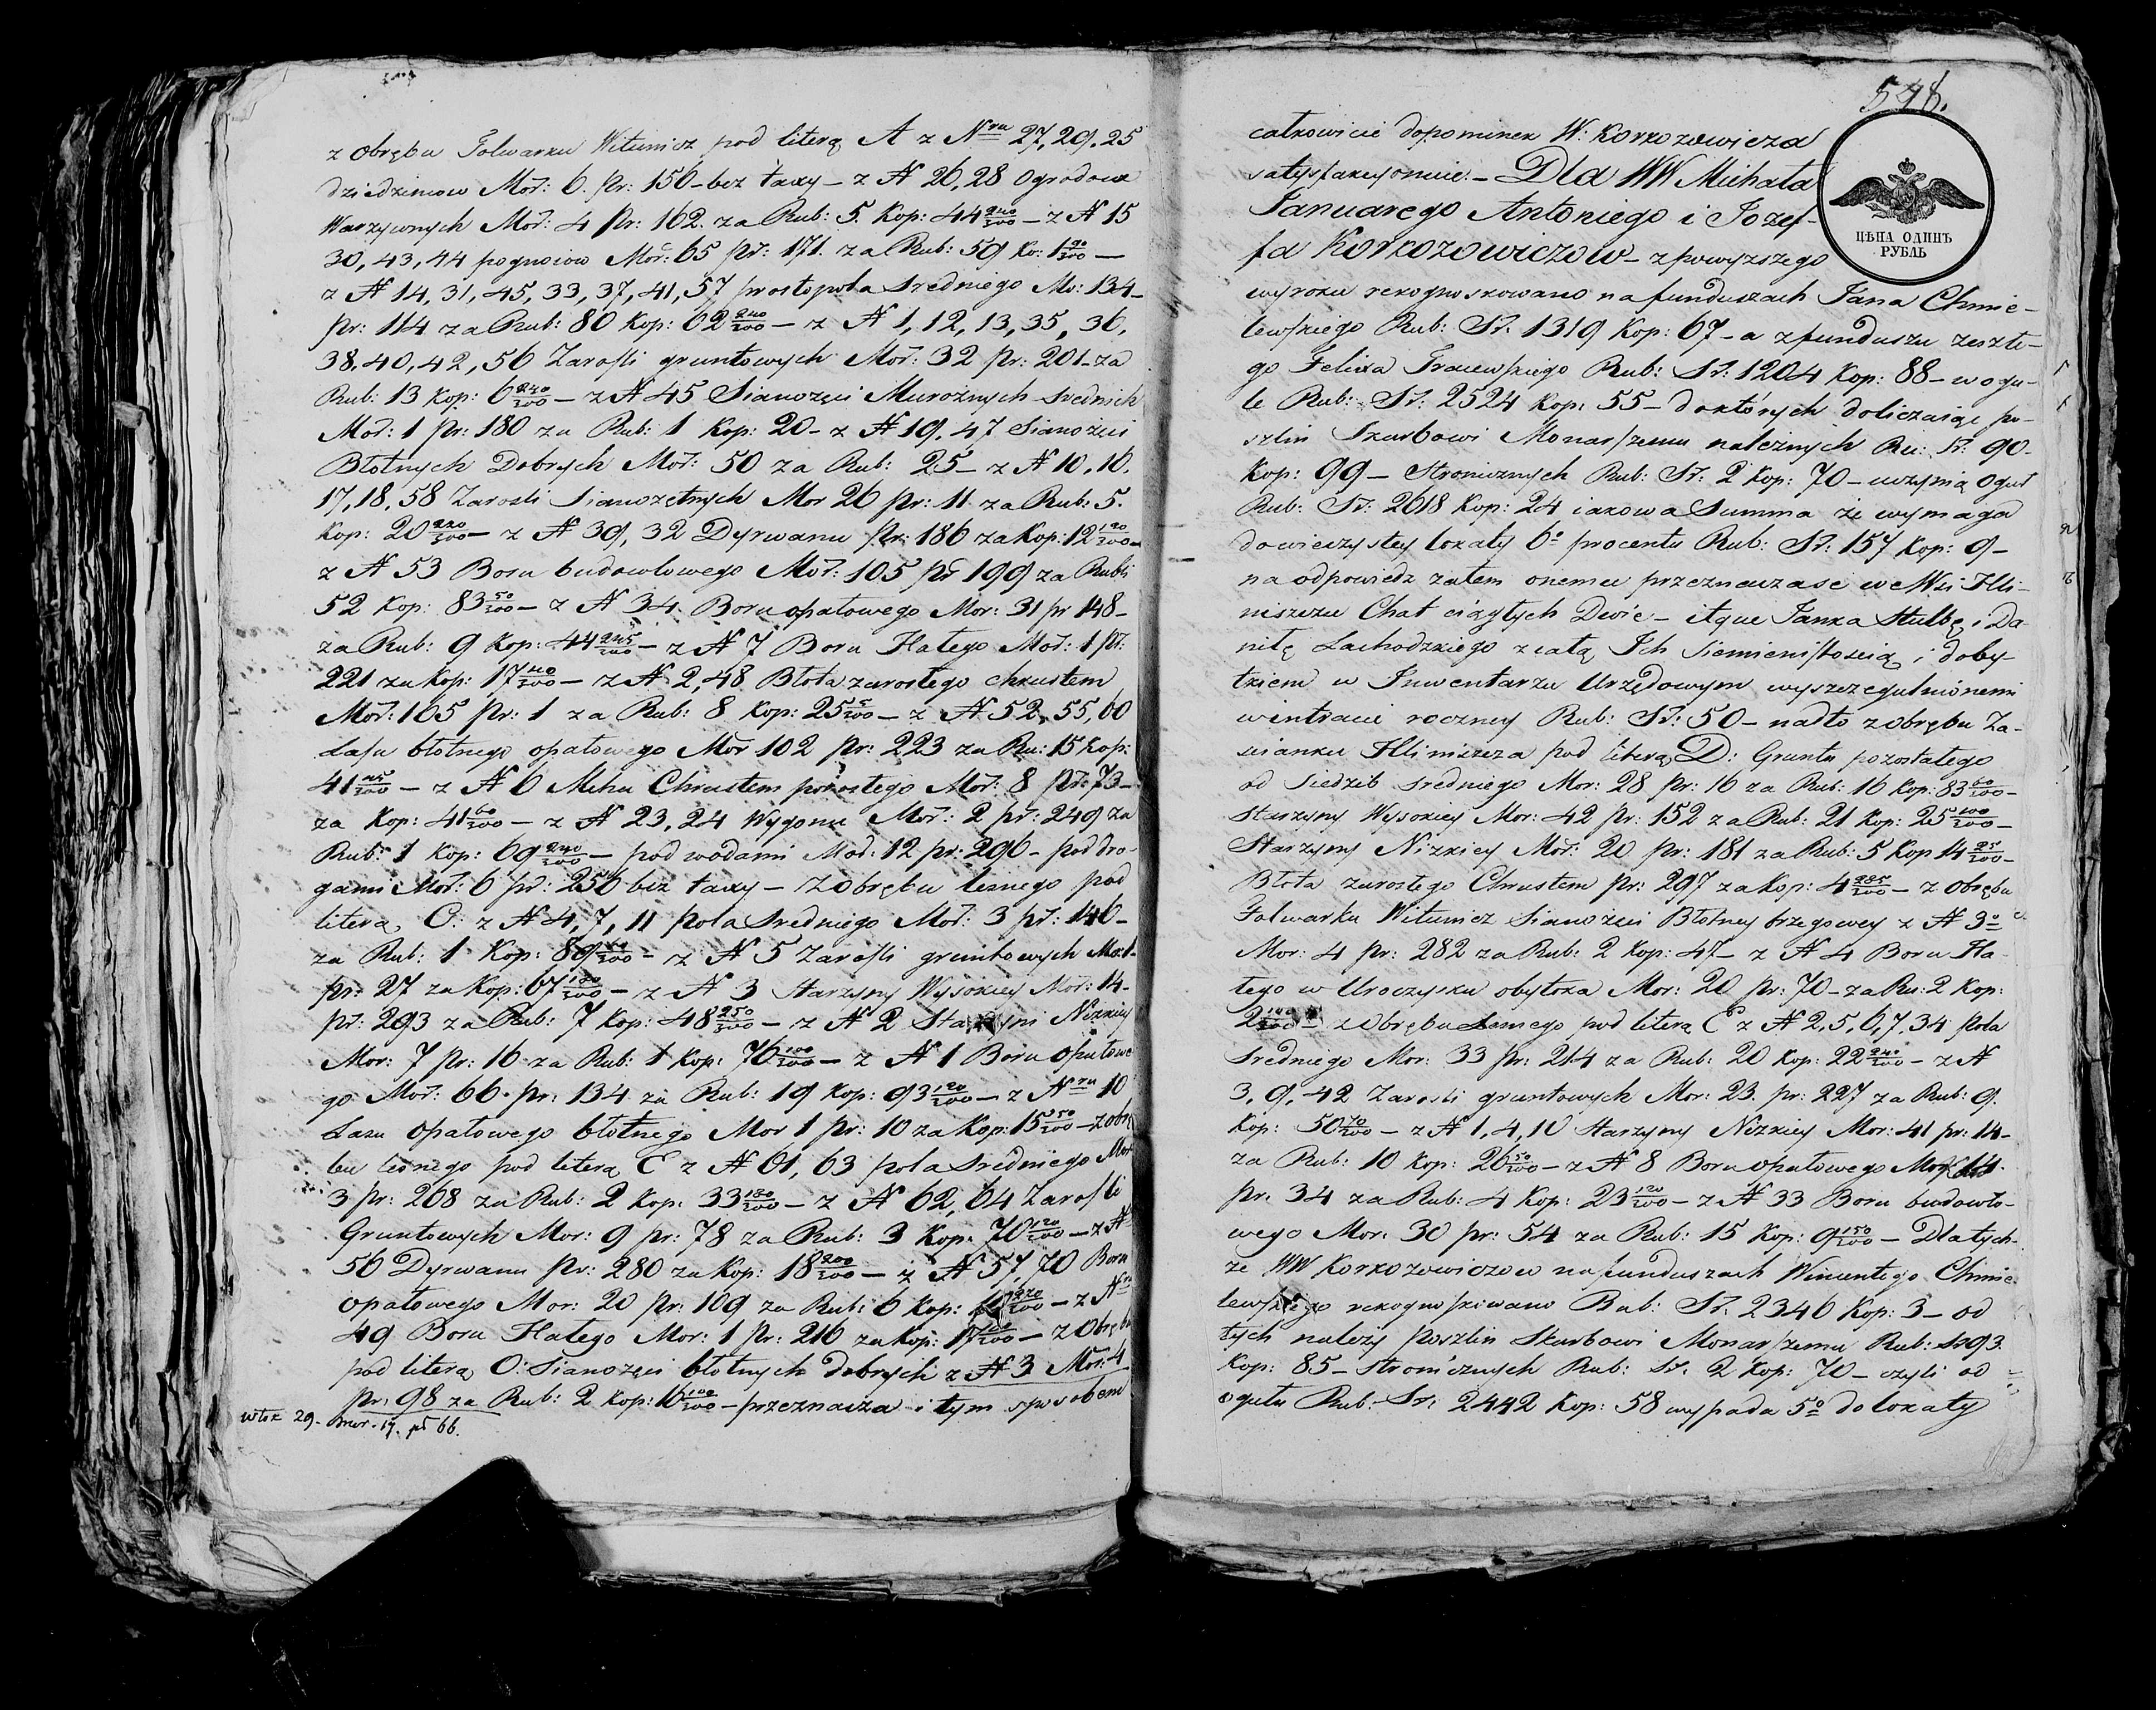 z Obrębu Folwarku Witunicz pod literą A z Nru 27, 29, 25
dziedzincow Mor: 6. pr: 156 - bez taxy - z N 26, 28 Ogrodow
Warzywnych Mor: 4 pr: 162. za Rub: 5. Kop: 44 240/300 - z N 15
30, 43, 44 pognoiow Mor: 65 pr: 171. za Rub: 59 Ko: 1 90/300 -
z N 14, 31, 45, 33, 37, 41, 57 prostopola Sredniego Mo: 134 -
pr: 114 za Rub: 80 Kop: 62 240/300 - z N 1, 12, 13, 35, 36,
38, 40, 42, 56 Zarosli gruntowych Mor: 32 pr: 201 - za
Rub: 13 Kop: 6 240/300 - z N 45 Sianozęci Murożnych srednich
Mor: 1 pr: 180 za Rub: 1 Kop: 20 - z N 19, 47 Sianozęci
Błotnych Dobrych Mor: 50 za Rub: 25 - z N 10, 16,
17, 18, 58 Zarosli Sianozętnych Mor 26 pr: 11 za Rub: 5.
Kop: 20 220/300 - z N 39, 32 Dyrwanu pr: 186 za Kop: 12 120/300 -
z N 53 Boru budowlowego Mor: 105 pr 199 za Rubli
52 Kop: 83 50/300 - z N 34. Boru opałowego Mor: 31 pr 148 -
za Rub: 9 Kop: 44 245/300 - z N 7 Boru Hałego Mor: 1 pr:
221 za Kop: 17 40/300 - z N 2, 48 Błota zarosłego chrustem
Mor: 165 pr: 1 za Rub: 8 Kop: 25 5/300 - z N 52, 55, 60
Lasu błotnego opałowego Mor 102 pr: 223 za Ru: 15 Kop:
41 45/300 - z N 6 Mchu Chrustem porosłego Mor: 8 pr: 73 -
za Kop: 41 60/300 - z N 23, 24 Wygonu Mor: 2 pr: 249 za
Rub: 1 Kop: 69 240/300 - pod wodami Mor: 12 pr: 296 - pod dro-
gami Mor: 6 pr: 256 bez taxy - z obrębu lesnego pod
literą C: z N 4, 7, 11 pola Sredniego Mor: 3 pr: 146 -
za Rub: 1 Kop: 89 /300 - z N 5 Zarosli gruntowych Mo: 1 -
pr: 27 za Kop: 67 180/300 - z N 3 Starzyny Wysokiey Mor: 14 -
pr: 293 za Rub: 7 Kop: 48 250/300 - z N 2 Starzyni Nizkiey
Mor: 7 pr: 16 za Rub: 1 Kop: 76 100/300 - z N 1 Boru opałowe
go Mor: 66. pr: 134 za Rub: 19 Kop: 93 120/300 - z Nru 10
Lasu opałowego błotnego Mor 1 pr: 10 za Kop: 15 50/300 - z obrę
bu lesnego pod literą E z N 61, 63 pola Sredniego Mor
3 pr: 208 za Rub: 2 Kop: 33 180/300 - z N 62, 64 Zarosli
Gruntowych Mor: 9 pr: 78 za Rub: 3 Kop: 70 120/300 - z N
56 Dyrwanu pr: 280 za Kop: 18 200/300 - z N 57, 70 Boru
opałowego Mor: 20 pr: 109 za Rub: 6 Kop: 220/300 - z Nru
49 Boru Hałego Mor: 1 pr: 216 za Kop: 17 /300 - z Obrębu
pod literą O: Sianozęci błotnych Dobrych z N 3 Mor: 4
pr: 98 za Rub: 2 Kop: 16 100/300 - przeznacza i tym sposobem
włok 29. mor. 17. pr 66.
548.
całkowicie dopominek W: Korkozowicza
satysfakcyonuie. - Dla WW Michała
Januarego Antoniego i Jozef-
fa Korkozowiczow - z powyzszego
wyroku rekognoskowano na funduszach Jana Chmie-
lewskiego Rub: Sr. 1319 Kop: 67 - a z funduszu zeszłe-
go Felixa Rub: Sr: 1204 Kop: 88 - w ogu-
le Rub: Sr: 2524 Kop: 55 - do których doliczaiąc po-
szlin Skarbowi Monarszemu należnych Ru: Sr. 90 -
Kop: 99 - Stronicznych Rub: Sr: 2 Kop: 70 - uczynią oguł
Rub: Sr: 2618 Kop: 24 iakowa Summa że wymaga
do wieczystey lokaty 6o procentu Rub: Sr: 157 Kop: 9 -
na odpowiedz zatem onemu przeznaczase we Wsi Hli-
niszczu Chat ciągłych Dwie - itque Janka Stulbę i Da-
niłę Lachodzkiego z całą Ich Siemienistoscią i doby-
tkiem w Inwentarzu Urzędowym wyszczegulnionemi
w intracie roczney Rub: Sr: 50 - nadto z obrębu Za-
scianku Hliniszcza pod literą D: Gruntu pozostałego
od Siedzib sredniego Mor: 28 pr: 16 za Rub: 16 Kop: 83 60/300 -
Starzyny Wysokiey Mor: 42 pr: 152 za Rub: 21 Kop: 25 100/300 -
Starzyny Nizkiey Mor: 20 pr: 181 za Rub: 5 Kop 14 25/300 -
Błota zarosłego Chrustem pr: 297 za Kop: 4 285/300 - z obrębu
Folwarku Witunicz Sianożęci Błotney brzegowey z N 3o
Mor: 4 pr: 282 za Rub: 2 Kop: 47 - z N 4 Boru Ha-
łego w Uroczysku obytoka Mor: 20 pr: 70 - za Ru: 2 Kop:
2 100/300 - z obrębu Lesnego pod literą E z N 2, 5, 6, 7, 34 pola
Sredniego Mor: 33 pr: 214 za Rub: 20 Kop: 22 240/300 - z N
3, 9, 42 Zarosli gruntowych Mor: 23. pr: 227 za Rub: 9.
Kop: 50 70/300 - z N 1, 4, 10 Starzyny Nizkiey Mor: 41 pr: 14 -
za Rub: 10 Kop: 26 50/300 - z N 8 Boru opałowego Mor: 14.
pr: 34 za Rub: 4 Kop: 23 120/300 - z N 33 Boru budowlo-
wego Mor: 30 pr: 54 za Rub: 15 Kop: 9 150/300 - Dla tych-
że WW Korkozowiczow na funduszach Wincentego Chmie-
lewskiego rekognoskowano Rub: Sr. 2346 Kop: 3 - od
tych należy poszlin Skarbowi Monarszemu Rub: Sr 93.
Kop: 85 - stronicznych Rub: Sr. 2 Kop: 70 - czyli od
ogułu Rub: Sr: 2442 Kop: 58 wypada 5o do lokaty
ЦѢНА ОДИНЪ
РУБЛЬ